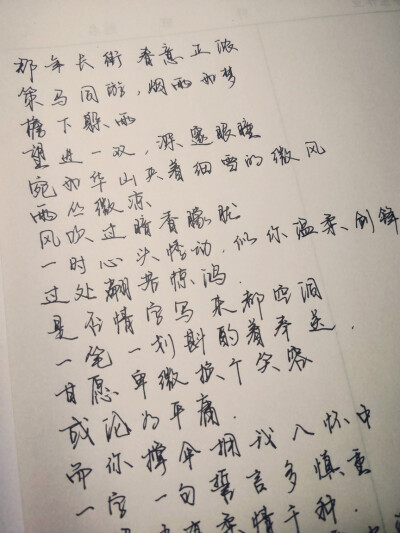 那年长街 春意正浓
策马同游，烟雨如梦
檐下躲雨
望进一双，深邃眼瞳
宛如华山夹着细雪的微风
雨丝微凉
风吹过暗香朦胧
一时心头悸动，似你温柔剑锋
过处翩若惊鸿.
是否情字写来都空洞
一笔一划斟酌着奉送.
甘愿卑微换个笑容
或沦为平庸.
而你撑伞拥我入怀中
一字一句誓言多慎重
柔情千种.